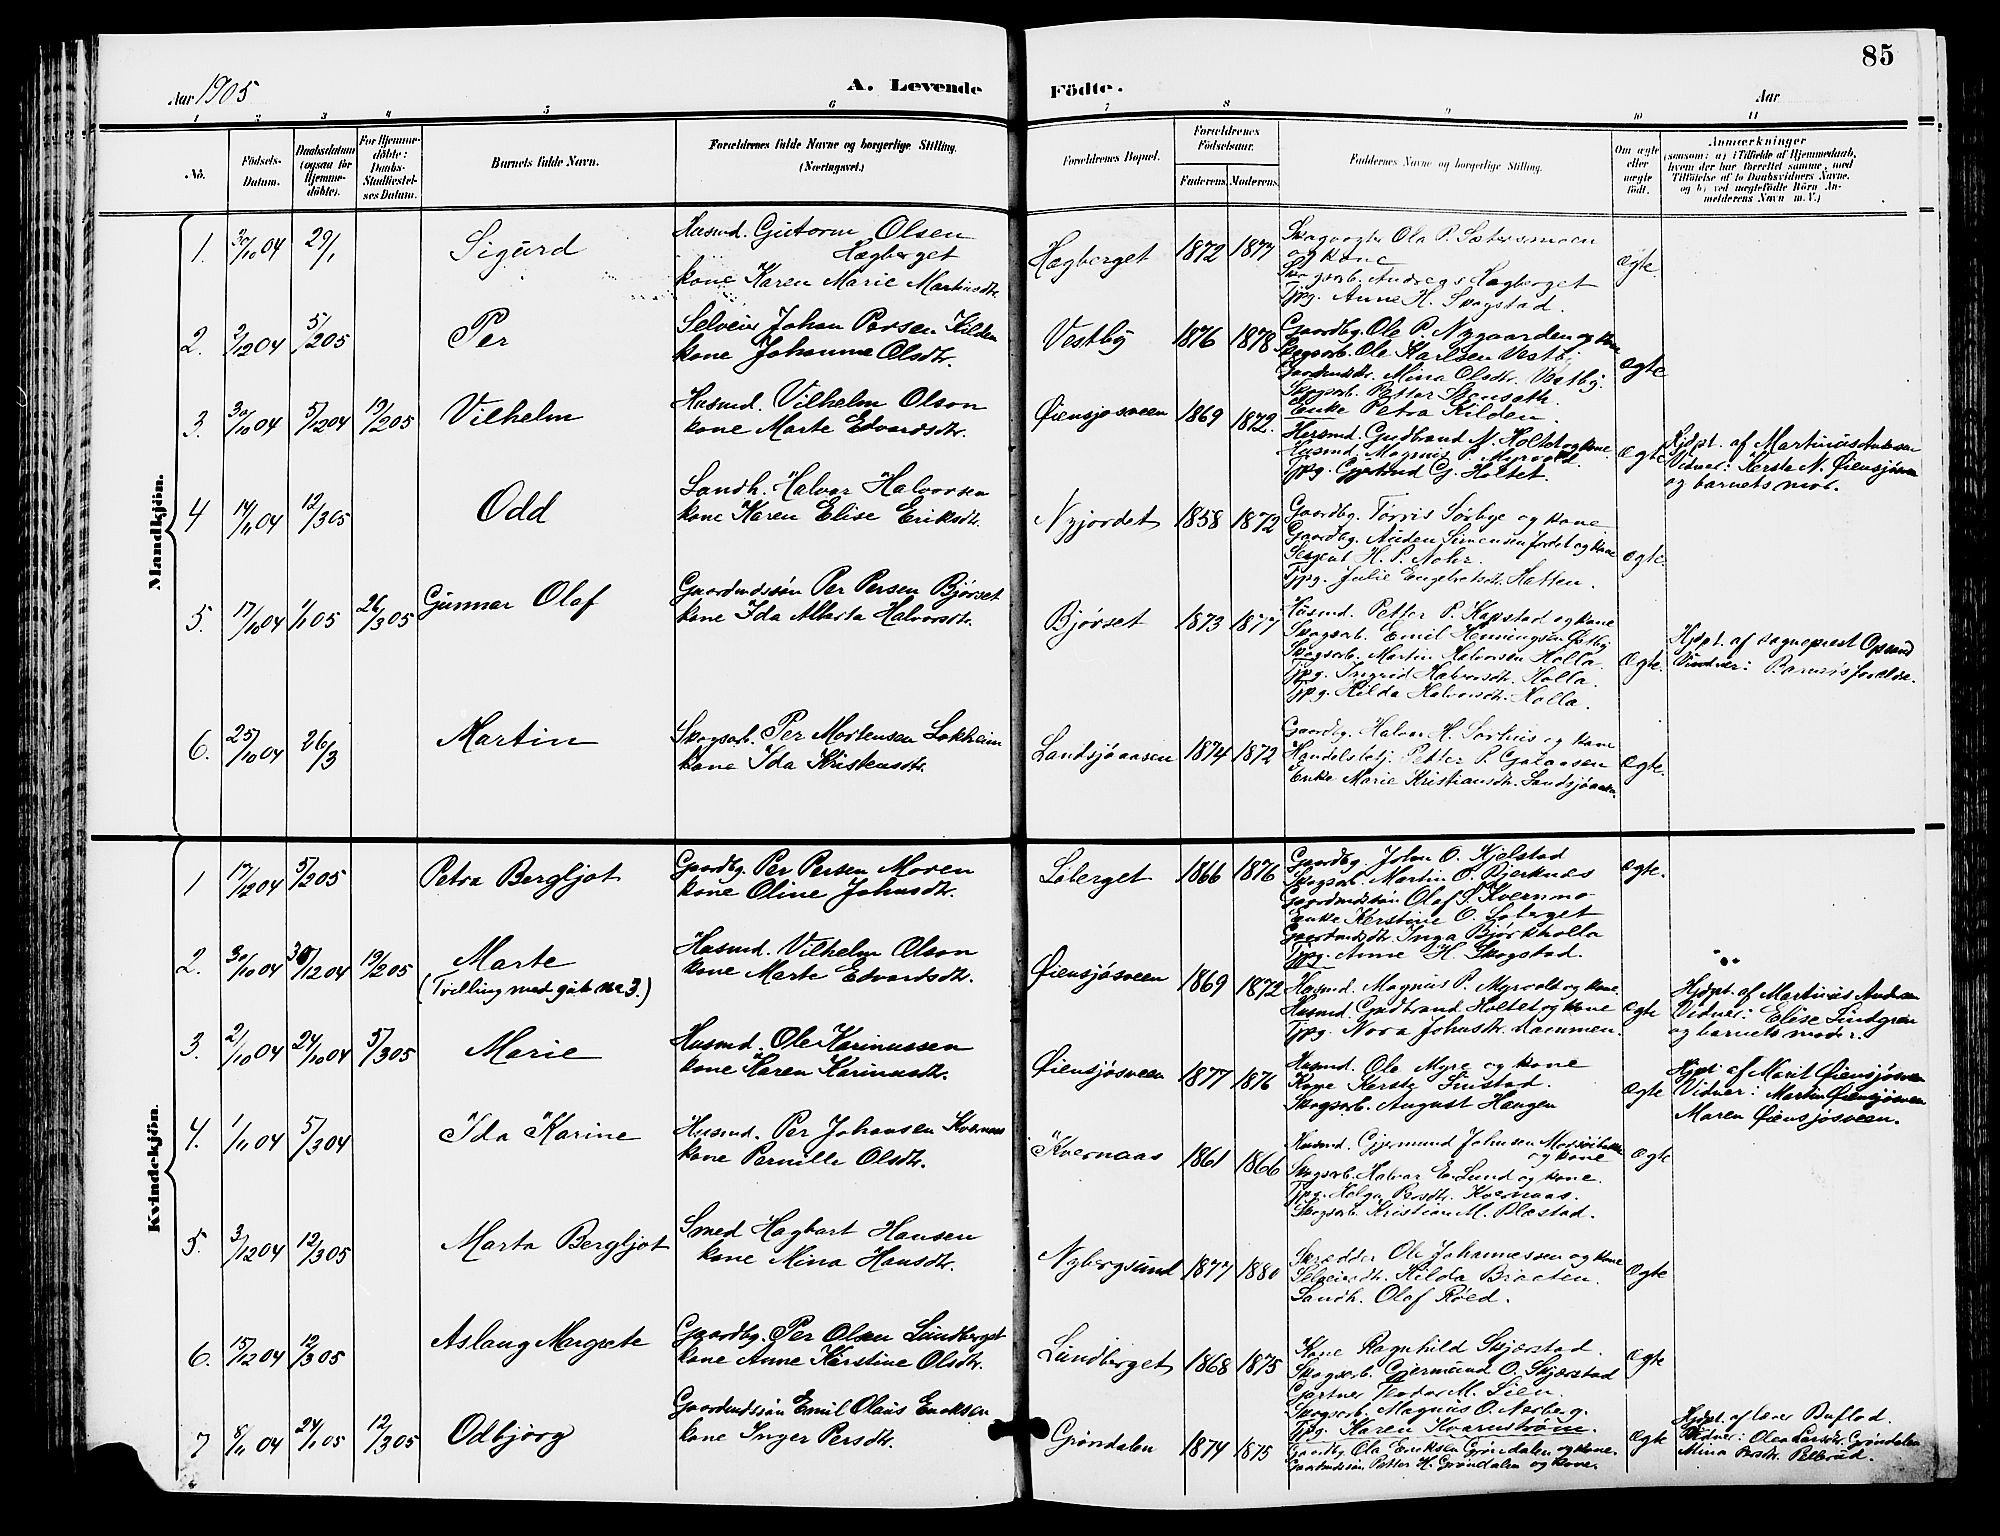 85
Aar 1905
A. Levende
Födte.
Aar
1 2 3 4 5 6 7 8 9 10 11
No.
Födsels-
Datum.
Daabsdatum
(ogsaa for
Hjemme-
döbte).
For Hjemme-
döbte:
Daabs-
Stadfæstel-
ses Datum.
Barnets fulde Navn.
Forældrenes fulde Navne og borgerlige Stilling.
(Næringsvei.)
Forældrenes Bopæl.
Forældrenes
Födselsaar.
Faderens.
Moderens.
Faddernes Navne og borgerlige Stilling.
Om ægte
eller
uægte
født.
Anmærkninger
(saasom: a) i Tilfælde af Hjemmedaab,
hvem der har forrettet samme, med
Tilföielse af to Daabsvidners Navne.
og b) ved uægtefödte Börn An-
melderens Navn m. V.)
Mandkjön.
1. 30/10 04 29/1 Sigurd
Husmd. Gutorm Olsen
Hægberget
kone Karen Marie Martinsdtr.
Hægberget 1872 1877
Skogvogter Ola P. Sætersmoen
og kone
Skogsarb. Andreas Hægberget
Tjpg. Anne H. Skogstad.
Ægte.
2. 2/12 04 5/2 05 Per
Selveier Johan Persen Kilden
kone Johanne Olsdtr.
Vestby 1876 1878
Gaardbg. Ole P. Nygaarden og kone
Skogsarb. Ole Karlsen Vestby
Gaardmdsdtr. Mina Olsdtr. Vestby.
Skogsarb. Petter Stenseth.
Enke Petra Kilden
Ægte
3. 30/10 04 5/12 04 19/2 05 Vilhelm
Husmd. Vilhelm Olson
kone Marte Edvardsdtr.
Øiensjøsveen 1869 1872.
Husmd. Gudbrand N. Holtet og kone
Husmd. Magnus P. Myrvold.
Tjpg. Gjertrud G. Holtet.
Ægte
Hjdpt. af Martinus Andersen
Vidner: Kerste N. Øiensjøsveen
og barnets mor.
4 14/11 04 12/3 05 Odd
Landh. Halvor Halvorsen
kone Karen Elise Eriksdtr.
Nyjordet 1858 1872
Gaardbg. Tørris Sørbye og kone
Gaardbg. Auden Simensen Jordet og kone
Sergent H. P. Nohr.
Tjpg. Julie Engebretsdtr. Hatten.
Ægte.
5. 17/10 04 1/1 05 26/3 05 Gunnar Olaf
Gaardmdssøn Per Persen Bjørset
kone Ida Alberta Halvorsdtr.
Bjørset 1873 1877
Husmd. Petter P. Kapstad og kone
Skogsarb. Emil Henningsen Østby
Skogsarb. Martin Halvorsen Holla.
Tjpg. Ingrid Halvorsdtr. Holla.
Tjpg. Hilda Halvorsdtr. Holla.
Ægte.
Hjdpt. af sogneprest Opsand
Vidner: Barnets forældre.
6. 25/10 04 26/3 Martin
Skogsarb. Per Mortensen Løkheim
kone Ida Kristensdtr.
Landsjøaasen 1874 1872
Gaardbg. Halvor H. Sørhus og kone
Handelsbetj. Petter P. Galaasen
Enke Marie Kristiansdtr. Landsjøaasen.
Ægte.
Kvindekjön.
1 17/12 04 5/2 05 Petra Bergljot
Gaardbg. Per Persen Moren
kone Oline Johnsdtr.
Løberget 1866 1876
Gaardbg. John O. Kjelstad
Skogsarb. Martin O. Bjerknæs
Gaardmdssøn Olaf S. Kvernmo
Enke Kerstine O. Løberget
Gaardmdsdtr. Inga Bjørkholla
Tjpg. Anne H. Skogstad.
Ægte.
2. 30/10 04 30/12 04 19/2 05 Marte
(Tvilling med gut nr 3.)
Husmd. Vilhelm Olson
kone Marte Edvardsdtr.
Øiensjøsveen 1869 1872
Husmd. Magnus P. Myrvold og kone.
Husmd. Gudbrand Holtet og kone
Tjpg. Nora Johnsdtr. Lammen.
Ægte
Hjdpt. af Martinus Andersen
Vidner: Elise Lindgren
og barnets moder.
3. 2/10 04 24/10 04 5/3 05 Marie
Husmd. Ole Karinussen
kone Karen Karinusdtr.
Øiensjøsveen 1877 1876
Husmd. Ola Myre og kone
Kone Kerste Finstad.
Skogsarb. August Haugen
Ægte
Hjpt. af Marit Øiensjøsveen
Vidner: Martin Øiensjøsveen
Maren Øiensjøsveen.
4. 1/11 04 5/3 04 Ida Karine
Husmd. Per Johansen Kvernaas
kone Pernille Olsdtr.
Kvernaas 1861 1866
Husmd. Gjermund Johnsen
og kone
Skogsarb. Halvor E. Lund og kone.
Tjpg. Helga Persdtr. Kvernaas.
Skogsarb. Kristian M. Plæstad.
Ægte
5. 3/12 04 12/3 05 Marta Bergljot
Smed Hagbart Hansen
kone Mina Hansdtr.
Nybergsund 1877 1880
Skrædder Ole Johannessen og kone
Selveierdtr. Hilda Braaten.
Landh. Olaf Røed.
Ægte
6. 15/12 04 12/3 05 Aslaug Margrete
Gaardbg. Per Olsen Lundberget
kone Anne Kerstine Olsdtr.
Lundberget 1868 1875
Kone Ragnhild Skjærstad.
Skogsarb. Gjermund O. Skjærstad
Gartner Teodor M. Lien.
Skogsarb. Magnus O. Narberg.
Tjpg. Karen Kvarnstrøm.
Ægte
7 8/11 04 24/1 05 12/3 05 Odbjørg
Gaardmdssøn Emil Olaus Eriksen
kone Inger Persdtr.
Grøndalen 1874 1875
Gaardbg. Ola Eriksen Grøndalen og kone.
Gaardmdssøn Petter H. Grøndalen og kone.
Ægte
Hjdpt. af lærer Buflod.
Vidner: Olea Larsdtr. Grøndalen
Mina Persdtr. Pellerud.